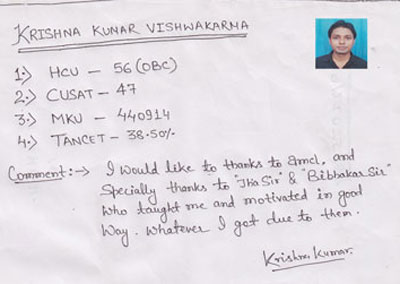 KRISHNA KUNAR VISHWAKARMA
1.) HCU – 56 (OBC)
2.) CUSAT – 47
3.) MKU – 440914
4.) TANCET – 38.50%
Comment:→ I would like to thanks to amcl, and
Specially thanks to "Jha Sir" & "Bibhakar Sir"
who taught me and motivated in good
Way. Whatever I got due to them.
Krishna Kumar.